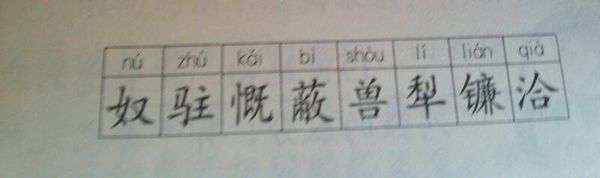 nú zhú kǎi bì shòu lí lián qià
奴 驻 慨 蔽 兽 犁 镰 洽